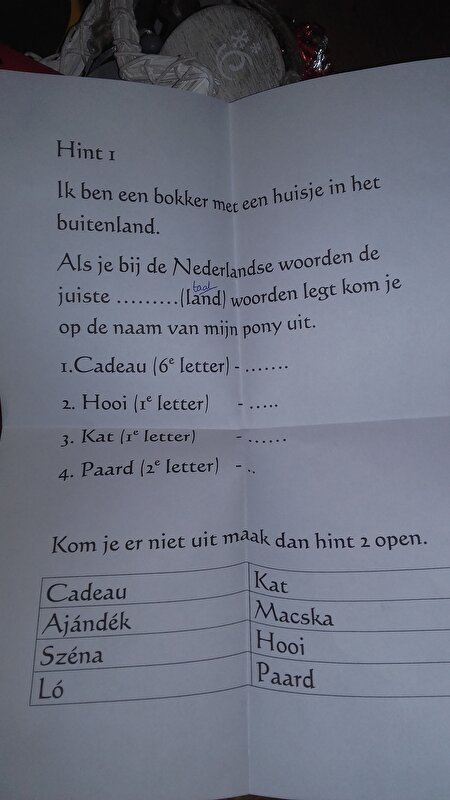 Hint 1
Ik ben een bokker met een huisje in het
buitenland.
Als je bij de Nederlandse woorden de
taal
juiste .........(land) woorden legt kom je
op de naam van mijn pony uit.
1.Cadeau (6e letter) - .......
2. Hooi (1e letter) - .....
3. Kat (1e letter) - ......
4. Paard (2e letter) - ..
Kom je er niet uit maak dan hint 2 open.
Cadeau Kat
Ajándék Macska
Széna Hooi
Ló Paard